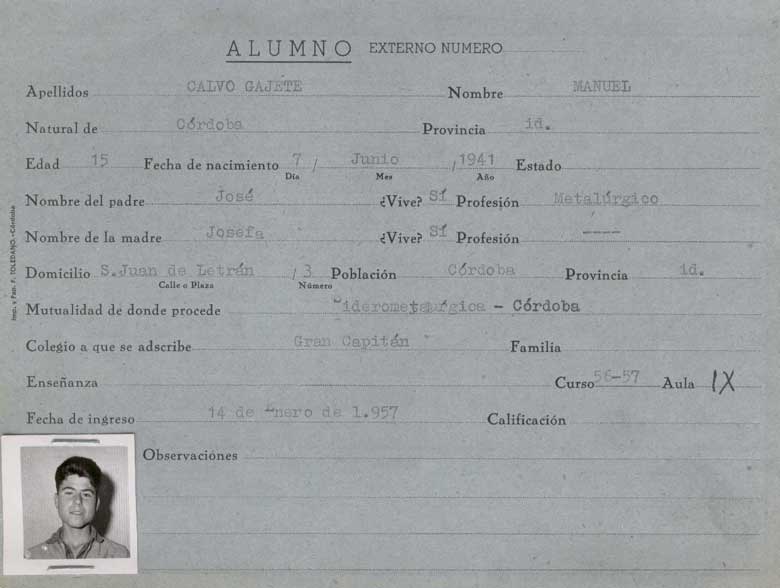 ALUMNO EXTERNO NUMERO
Apellidos CALVO GAJETE Nombre MANUEL
Natural de Córdoba Provincia id.
Edad 15 Fecha de nacimiento 7 / Junio / 1941 Estado
Día Mes Año
Nombre del padre José ¿Vive? Sí Profesión Metalúrgico
Nombre de la madre Josefa ¿Vive? Sí Profesión ---
Domicilio S.Juan de Letrán / 3 Población Córdoba Provincia id.
Calle o Plaza Número
Mutualidad de donde procede Siderometalúrgica - Córdoba
Colegio a que se adscribe Gran Capitán Familia
Enseñanza Curso 56-57 Aula IX
Fecha de ingreso 14 de Enero de 1.957 Calificación
Observaciones
Imp. y Pap. F. TOLEDANO.-Córdoba